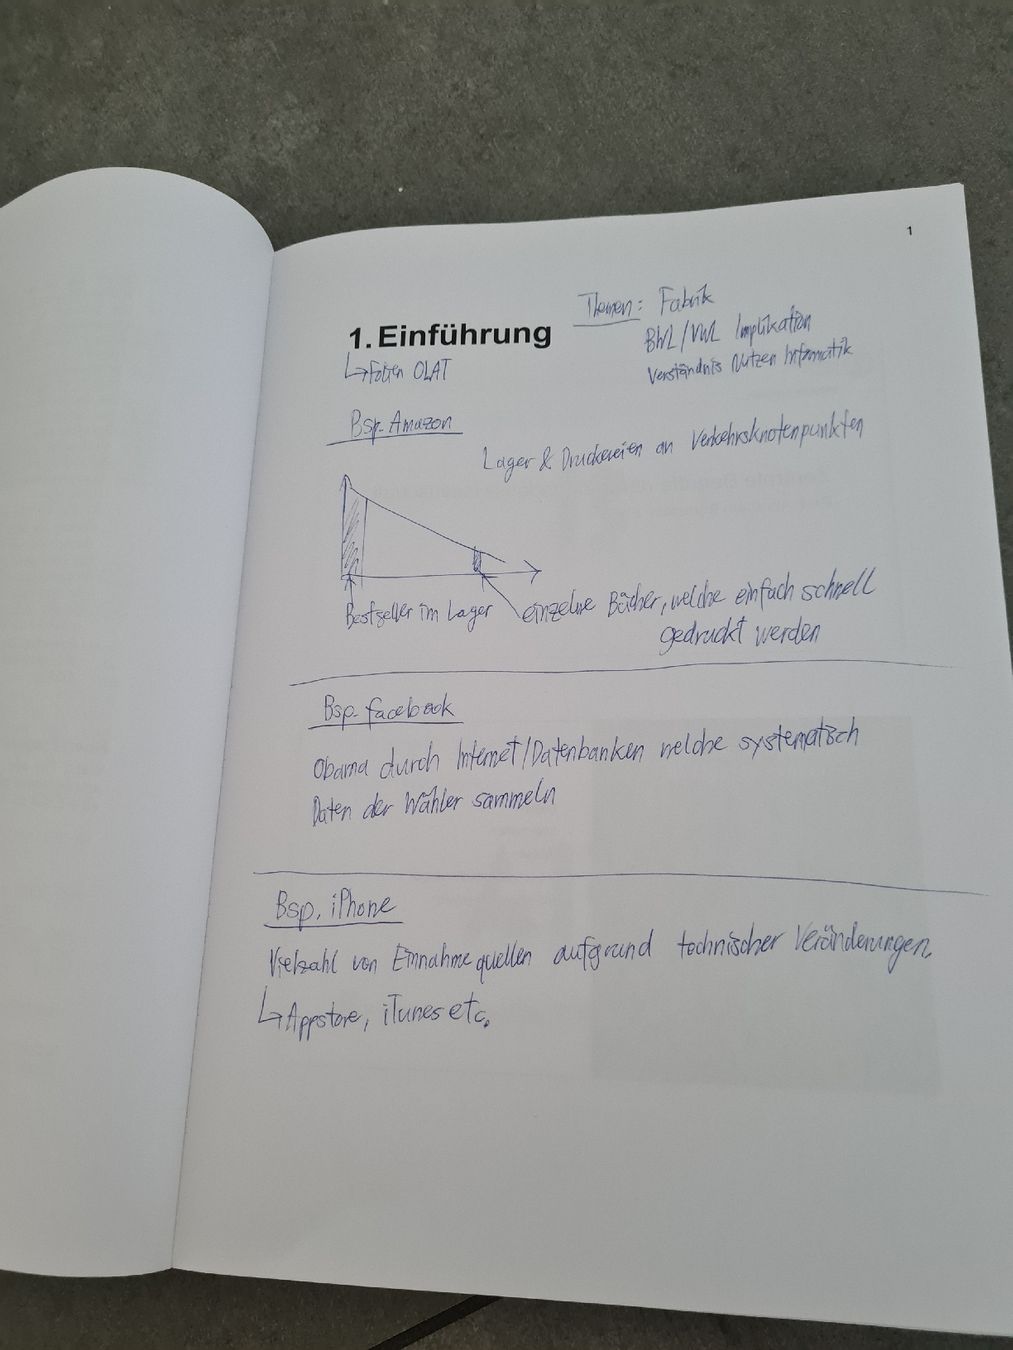 1
Themen: Fabrik
1. Einführung
BWL/VWL Implikation
↳ Folien OLAT
Verständnis Nutzen Informatik
Bsp. Amazon
Lager & Druckereien an Verkehrsknotenpunkten
Bestseller im Lager
einzelne Bücher, welche einfach schnell
gedruckt werden
Bsp. facebook
Obama durch Internet/Datenbanken welche systematisch
Daten der Wähler sammeln
Bsp. iPhone
Vielzahl von Einnahmequellen aufgrund technischer Veränderungen.
↳ Appstore, iTunes etc.